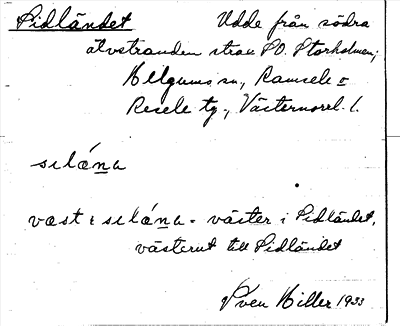 Sidländet Udde från södra
älvstranden strax SO. Storholmen;
Helgums sn, Ramsele o
Resele tg., Västernorrl. l.
sɩlǻna
väst ɩ sɩlǻna = väster i Sidländet,
västerut till Sidländet
Sven Hiller 1933